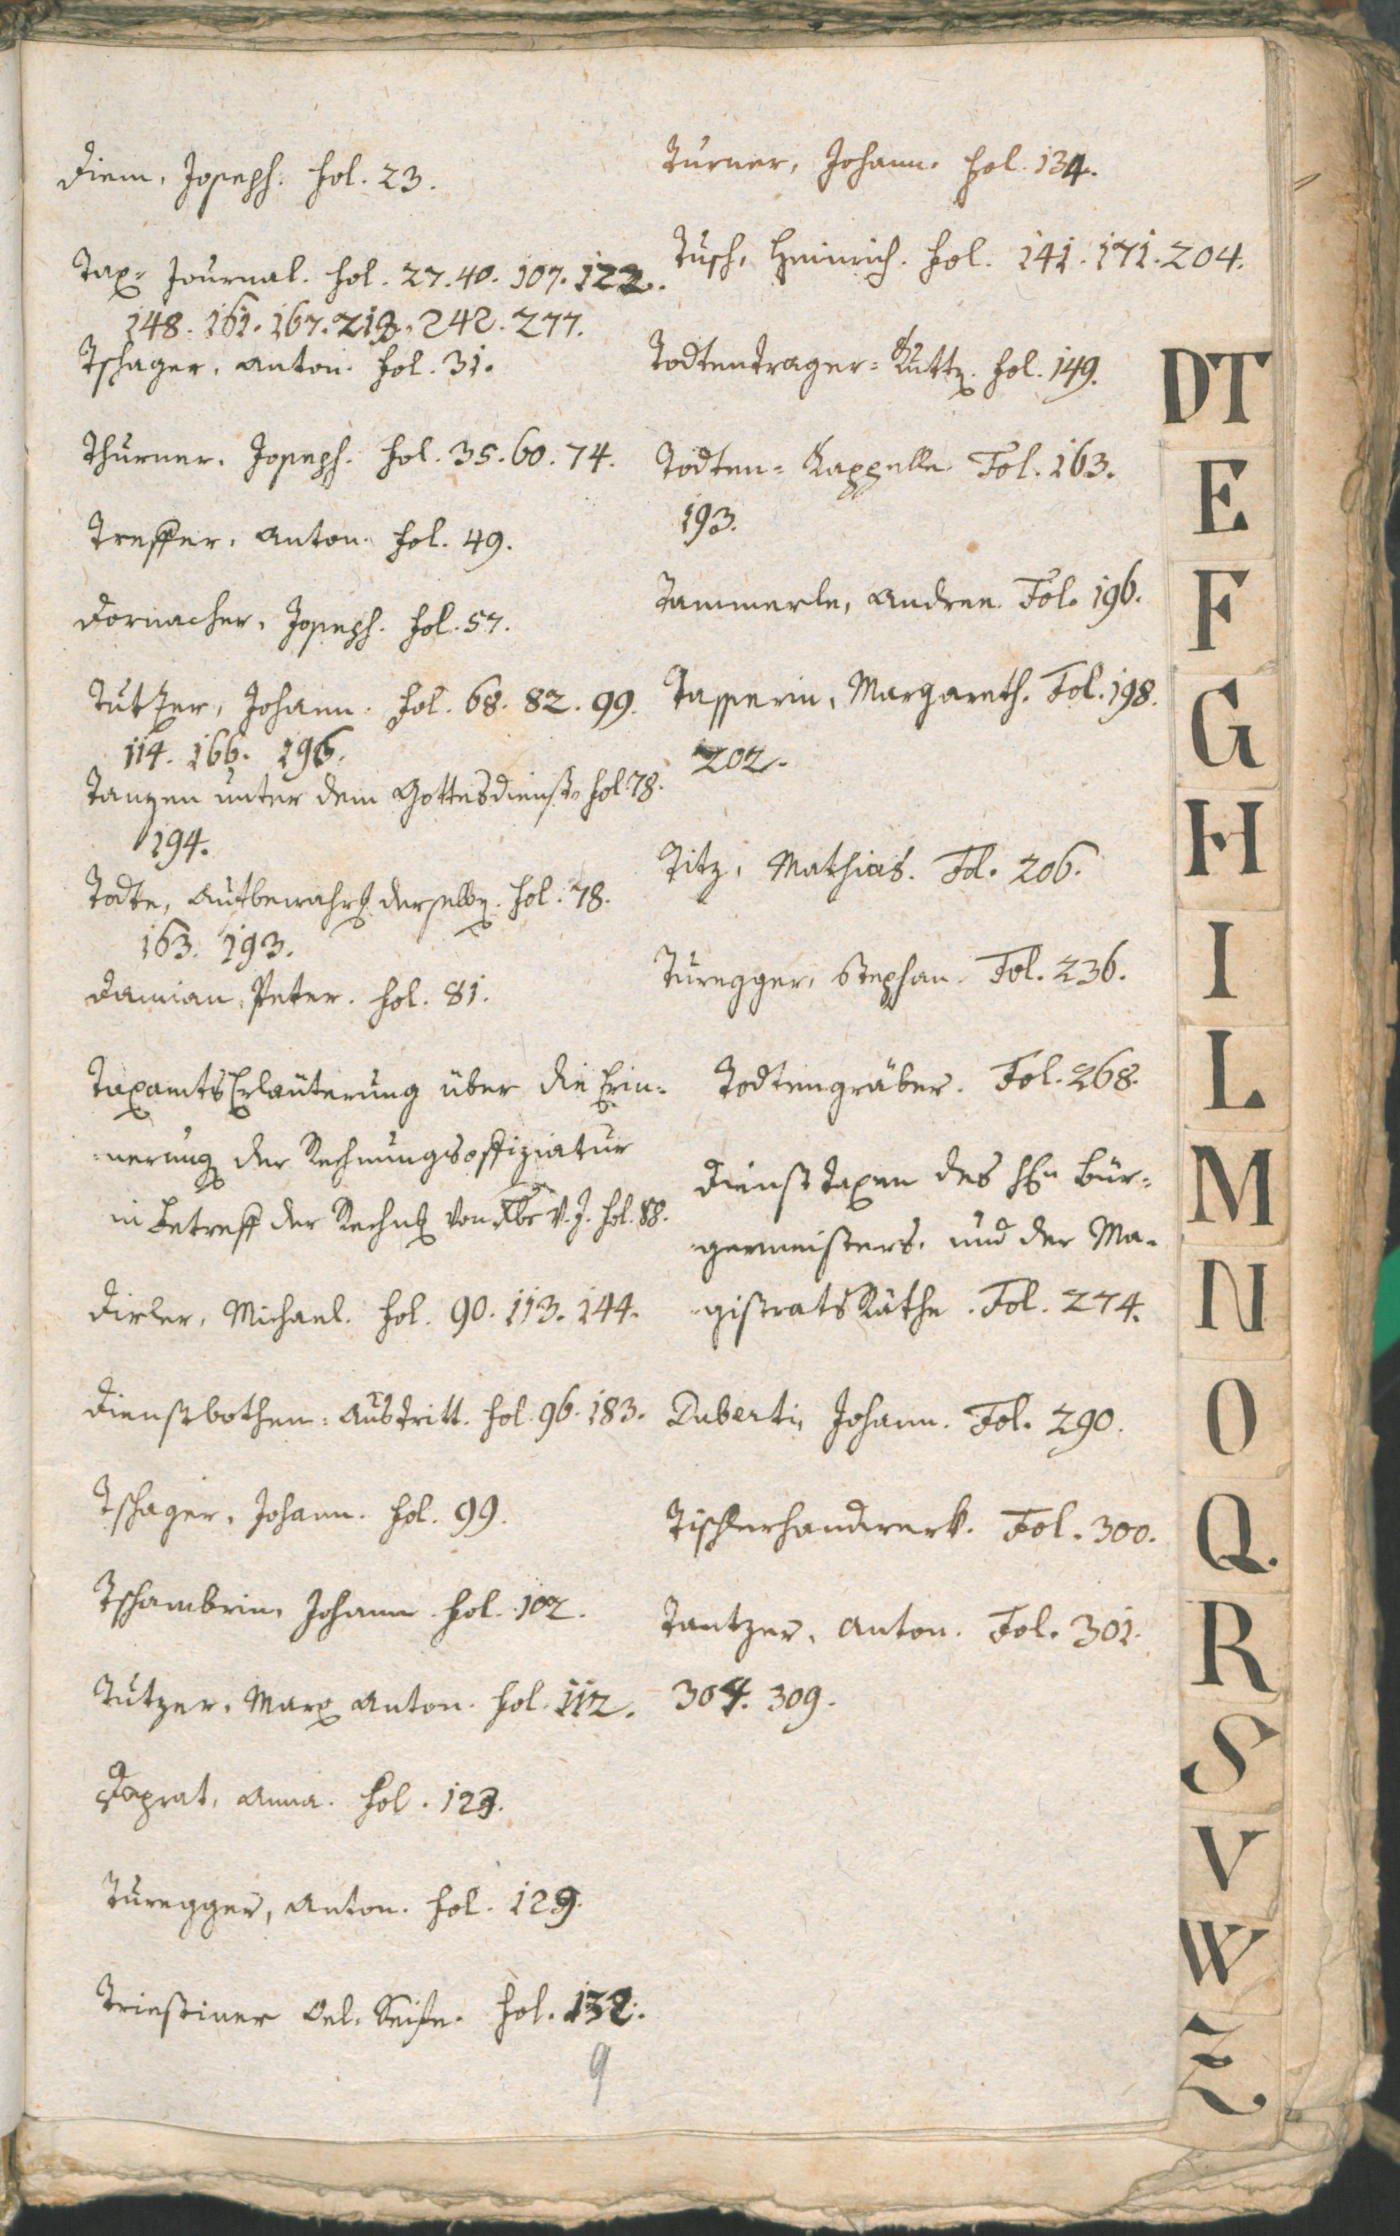 Diem, Joseph. fol. 23.
Tax= Journal. fol. 27. 40. 107. 122.
148. 161. 167. 218. 242. 277.
Tschager, Anton. fol. 31.
Thurner, Joseph. fol. 35. 60. 74.
Treffer, Anton. fol. 49.
Dornacher, Joseph. fol. 57.
Tutzer, Johann. fol. 68. 82. 99.
114. 166. 196.
Tanzen unter dem Gottesdienst. fol. 78.
194.
Todte, Aufbewahrg derselben. fol. 78.
163. 193.
Damian, Peter. fol. 81.
Taxamts Erläuterung über die Erin=
=nerung der Rechnungsoffiziatur
in Betreff der Rechng von Xbr v. J. fol. 88.
Dirler, Michael. fol. 90. 113. 144.
Dienstbothen= Austritt. fol. 96. 183.
Tschager, Johann. fol. 99.
Tschambrin, Johann. fol. 102.
Tutzer, Marx Anton. fol. 112.
Daprat, Anna. fol. 123.
Turegger, Anton. fol. 129.
Triestiner Oel. Seife. fol. 132.
9
Turner, Johann. fol. 134.
Tusch, Heinrich. fol. 141. 171. 204.
Todtentrager= Kutten. fol. 149.
Todten= Kappelle. Fol. 163.
193.
Tammerle, Andree. Fol. 196.
Tasserin, Margareth. Fol. 198.
202.
Titz, Mathias. Fol. 206.
Turegger, Stephan. Fol. 236.
Todtengräber. Fol. 268.
Diensttaxen des Hn Bür=
germeisters, und der Ma=
gistrats Räthe. Fol. 274.
Duberti, Johann. Fol. 290.
Tischlerhandwerk. Fol. 300.
Tantzer, Anton. Fol. 301.
304. 309.
DT
E
F
G
H
I
L
M
N
O
Q.
R
S
V
W
Z